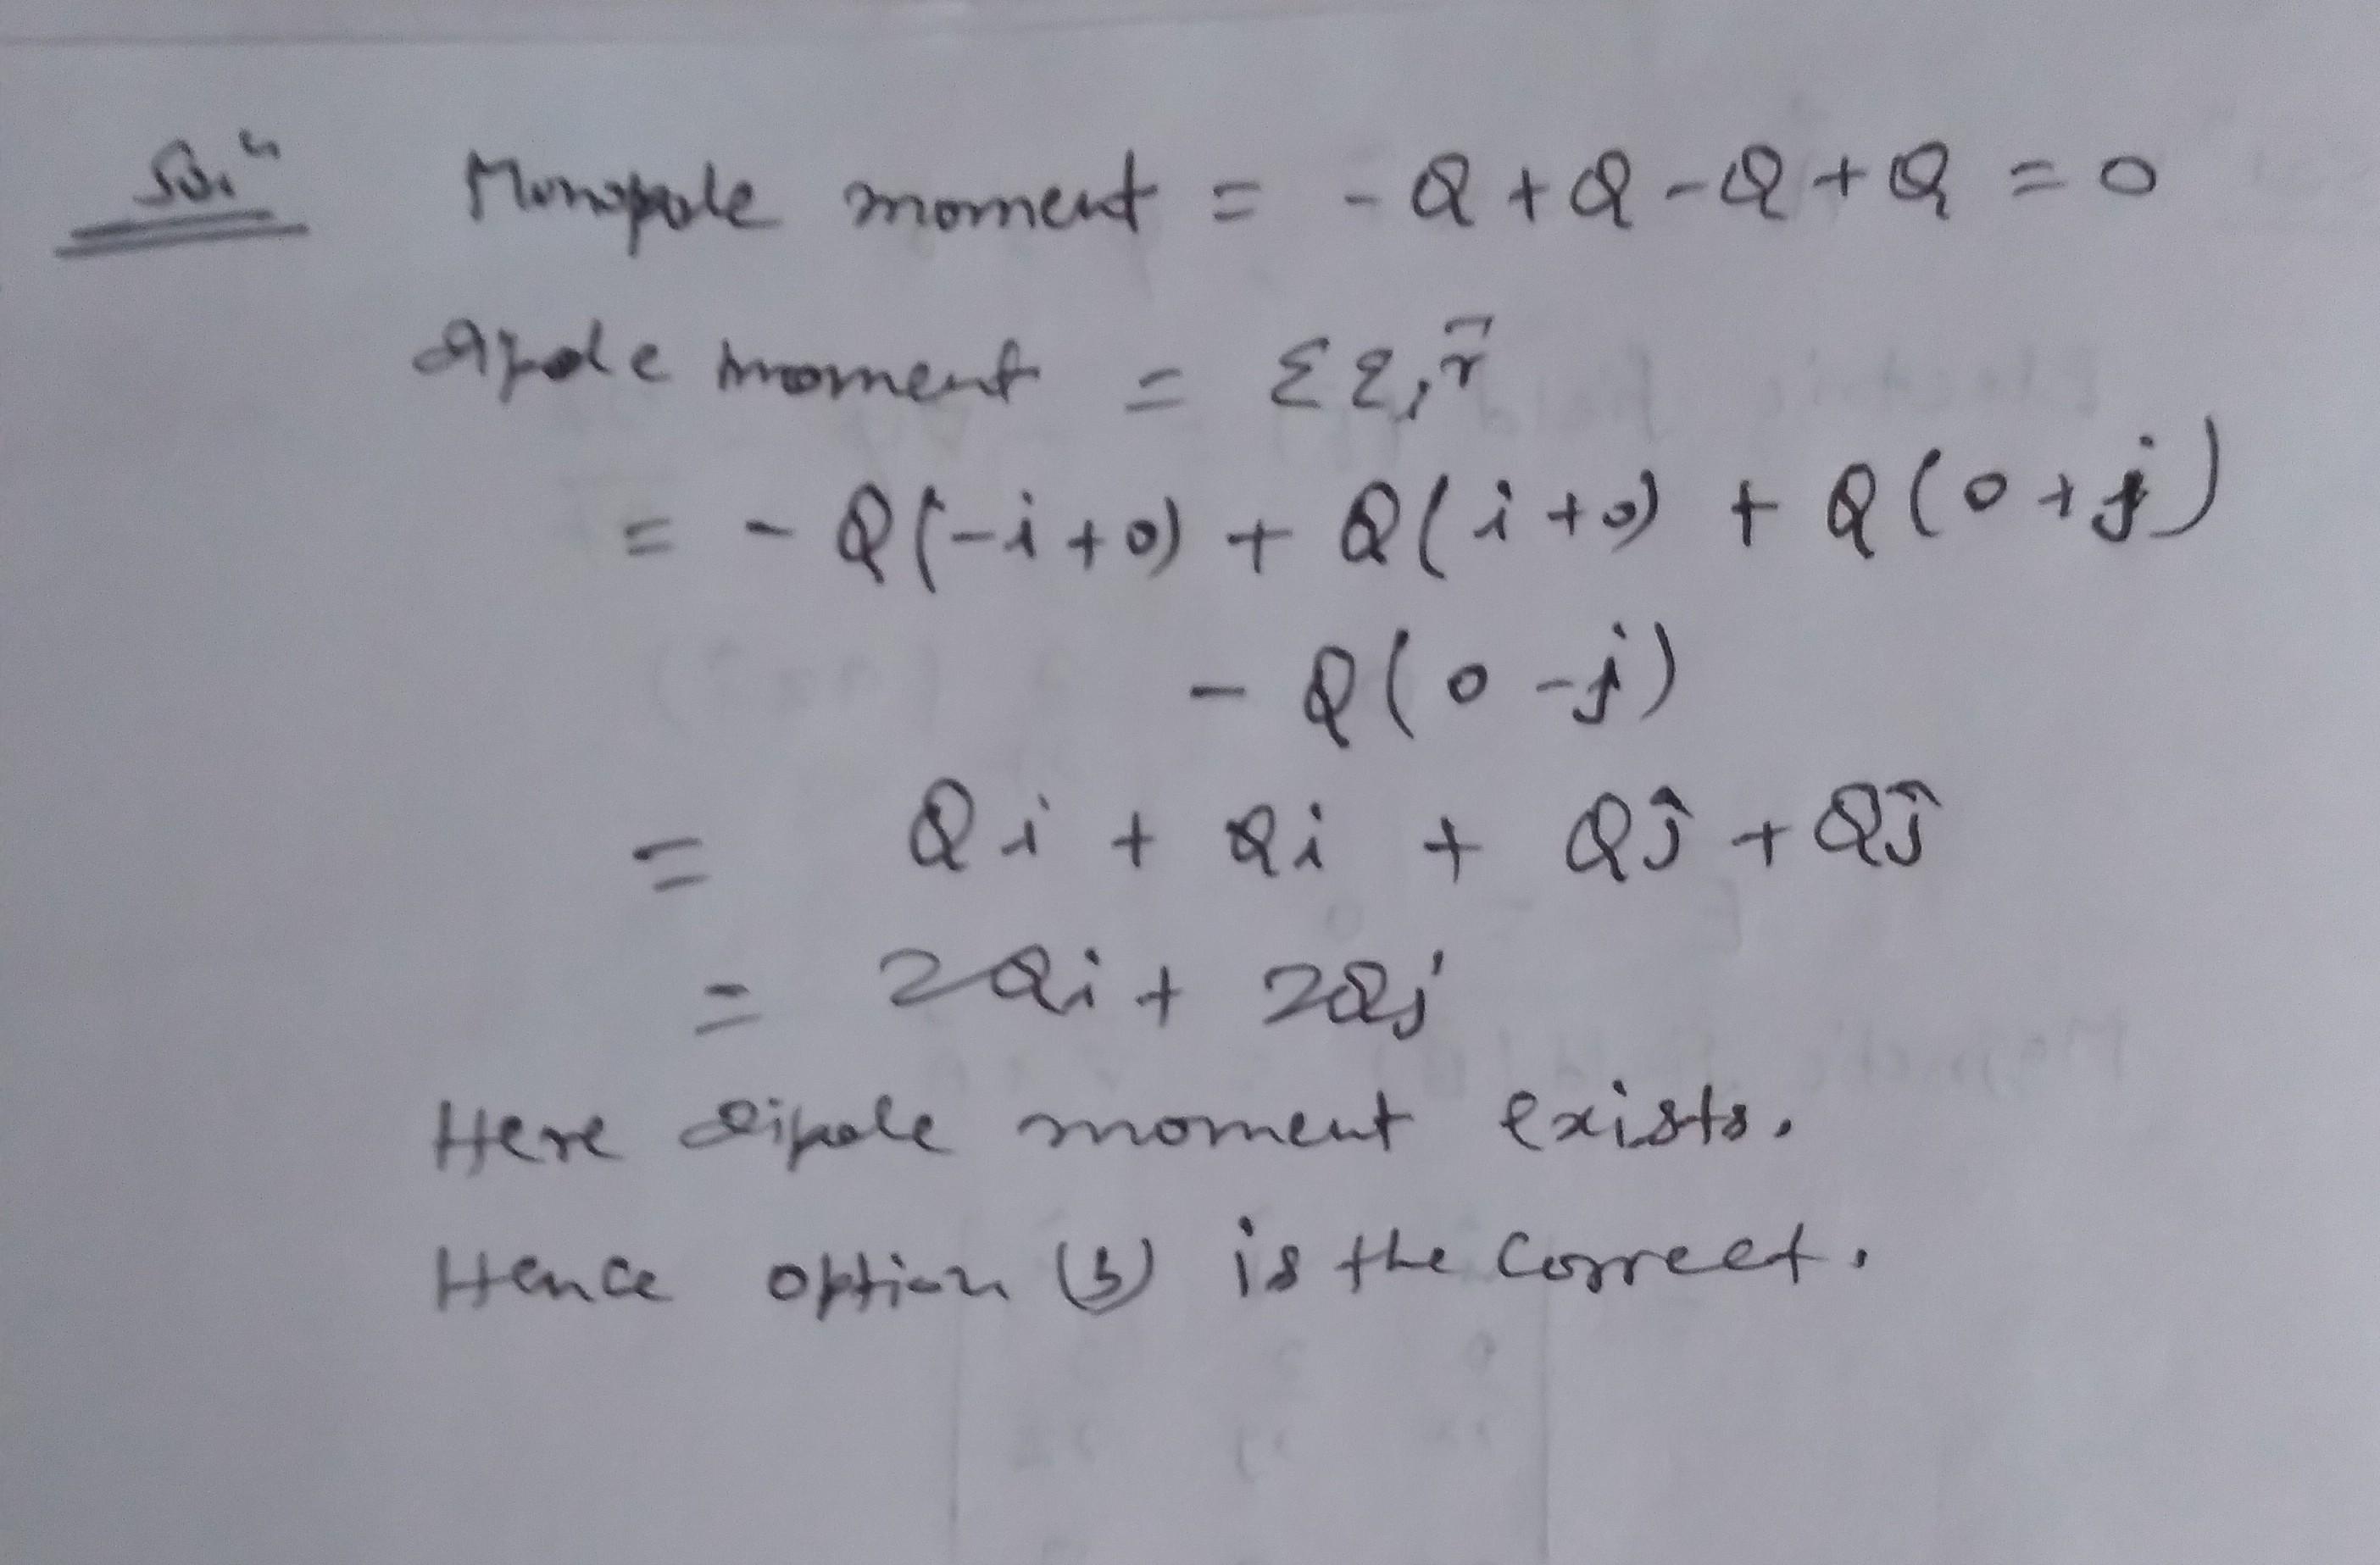 Soln Monopole moment = - Q + Q - Q + Q = 0
dipole moment = Σ q, r⃗
= - Q(-i+0) + Q(i+0) + Q(0+j)
- Q(0-j)
= Qi + Qi + Qĵ + Qĵ
= 2Qi + 2Qj
Here dipole moment exists.
Hence option (3) is the correct.